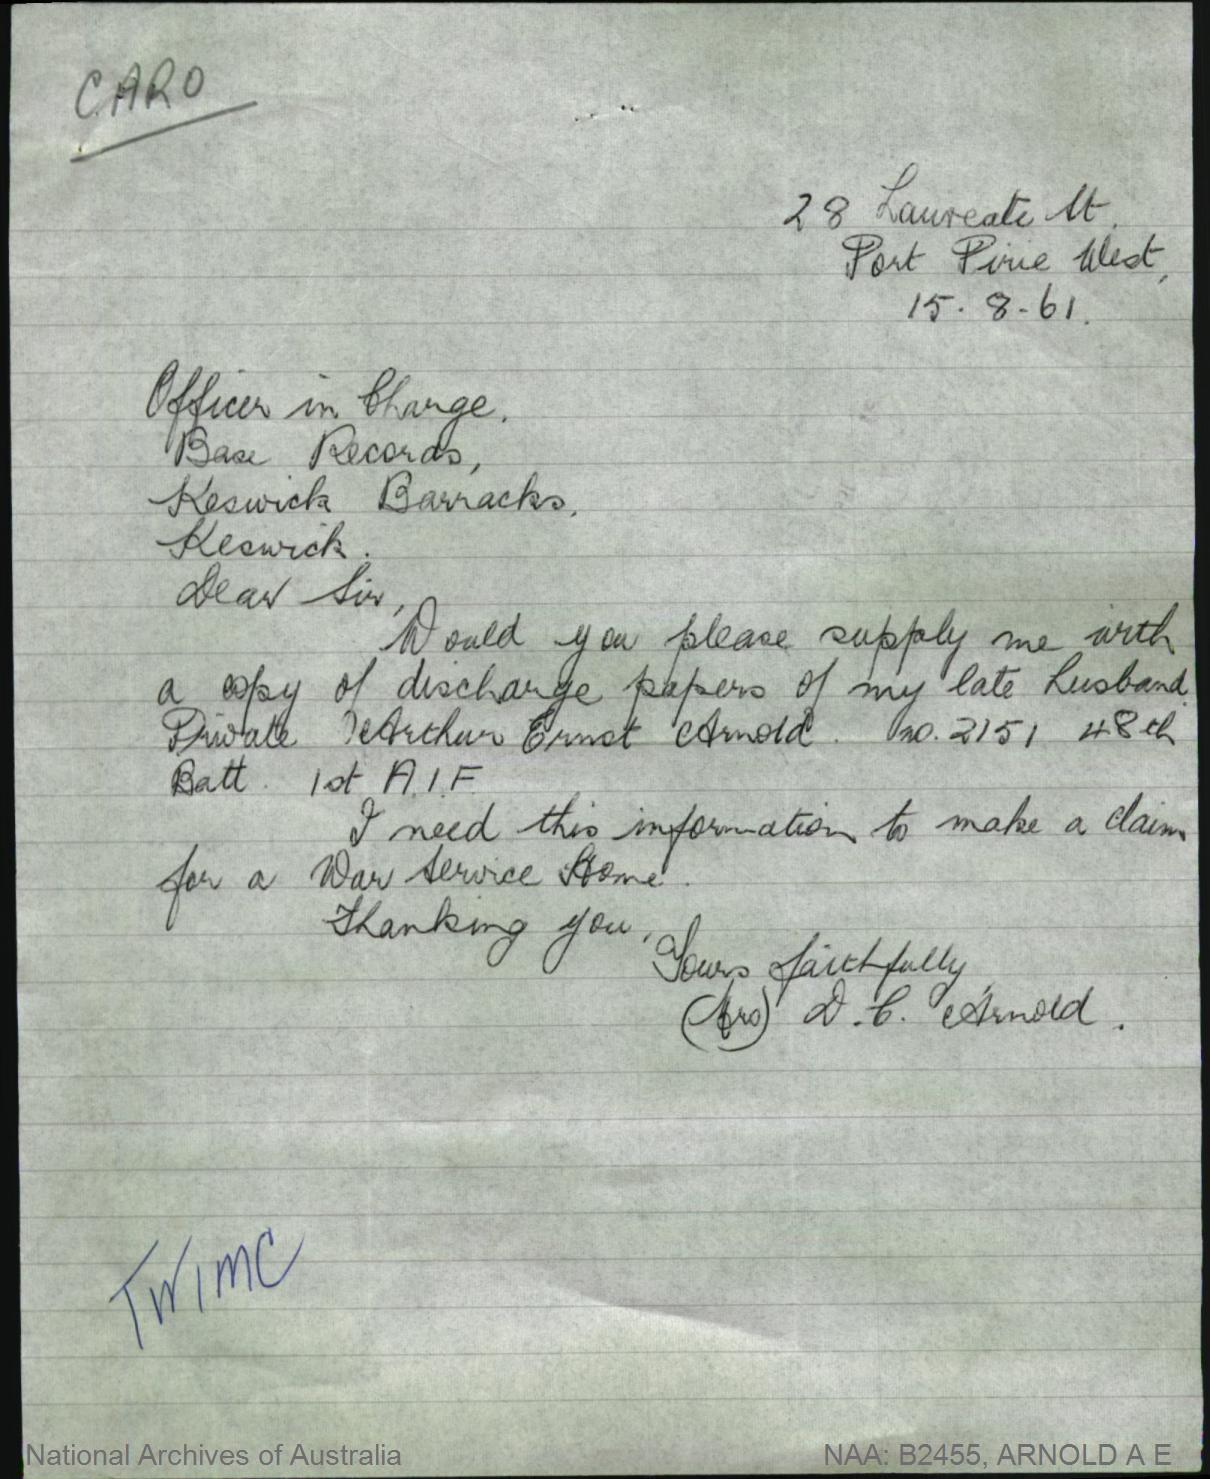 CARO
28 Laureate St.
Port Pirie West,
15.8-61.
Officer in Charge.
Base Records,
Keswick Barracks,
Keswick.
Dear Sir,
Would you please supply me with
a copy of discharge papers of my late husband
Private Arthur Ernst Arnold. no. 2151 48th
Batt. 1st A.I.F
I need this information to make a claim
for a War Service Home.
Thanking you,
Yours faithfully
(Mrs) D.C. Arnold.
TWIMC
National Archives of Australia
NAA: B2455, ARNOLD A E